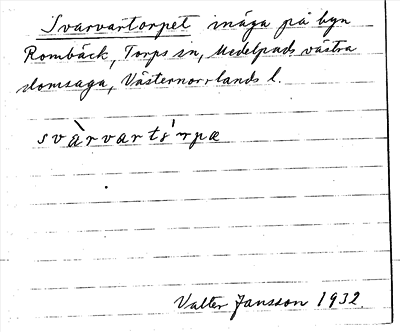 Svarvartorpet inäga på byn
Rombäck, Torps sn, Medelpads västra
domsaga, Västernorrlands l.
svàrvartó'rpæ
Valter Jansson 1932.